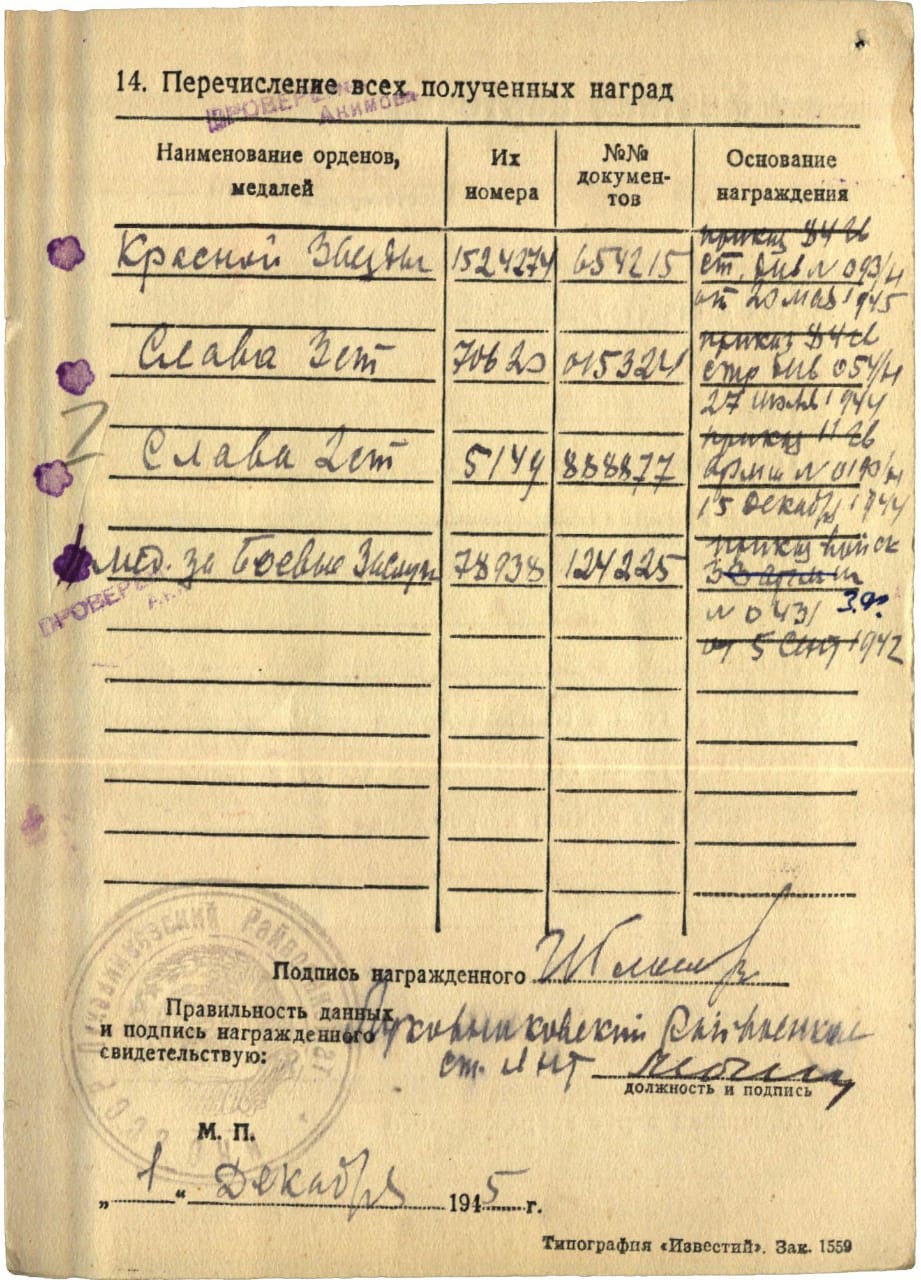 14. Перечисление всех полученных наград
ПРОВЕРЕНО
Акимова
Наименование орденов, медалей
Их номера
№№ докумен-тов
Основание награждения
Красной Звезды 1524274 654215 приказ 84 гв
ст. див № 093/н
от 20 мая 1945
Слава 3 ст 70620 015324 приказ 84 гв
стр див 054/н
27 июля 1944
Слава 2 ст 5149 888877 приказ 11 гв
армии № 0190/н
15 декабря 1944
мед. за боевые заслуги 78938 124225 приказ войск
33 армии
№ 0431 З.Ф.
от 5 сент 1942
ПРОВЕРЕНО
Подпись награжденного
Правильность данных
и подпись награжденного
свидетельствую:
Райвоенком
ст. л-нт
должность и подпись
М. П.
„ 1 “ Декабря 1945 г.
Типография «Известий». Зак. 1559